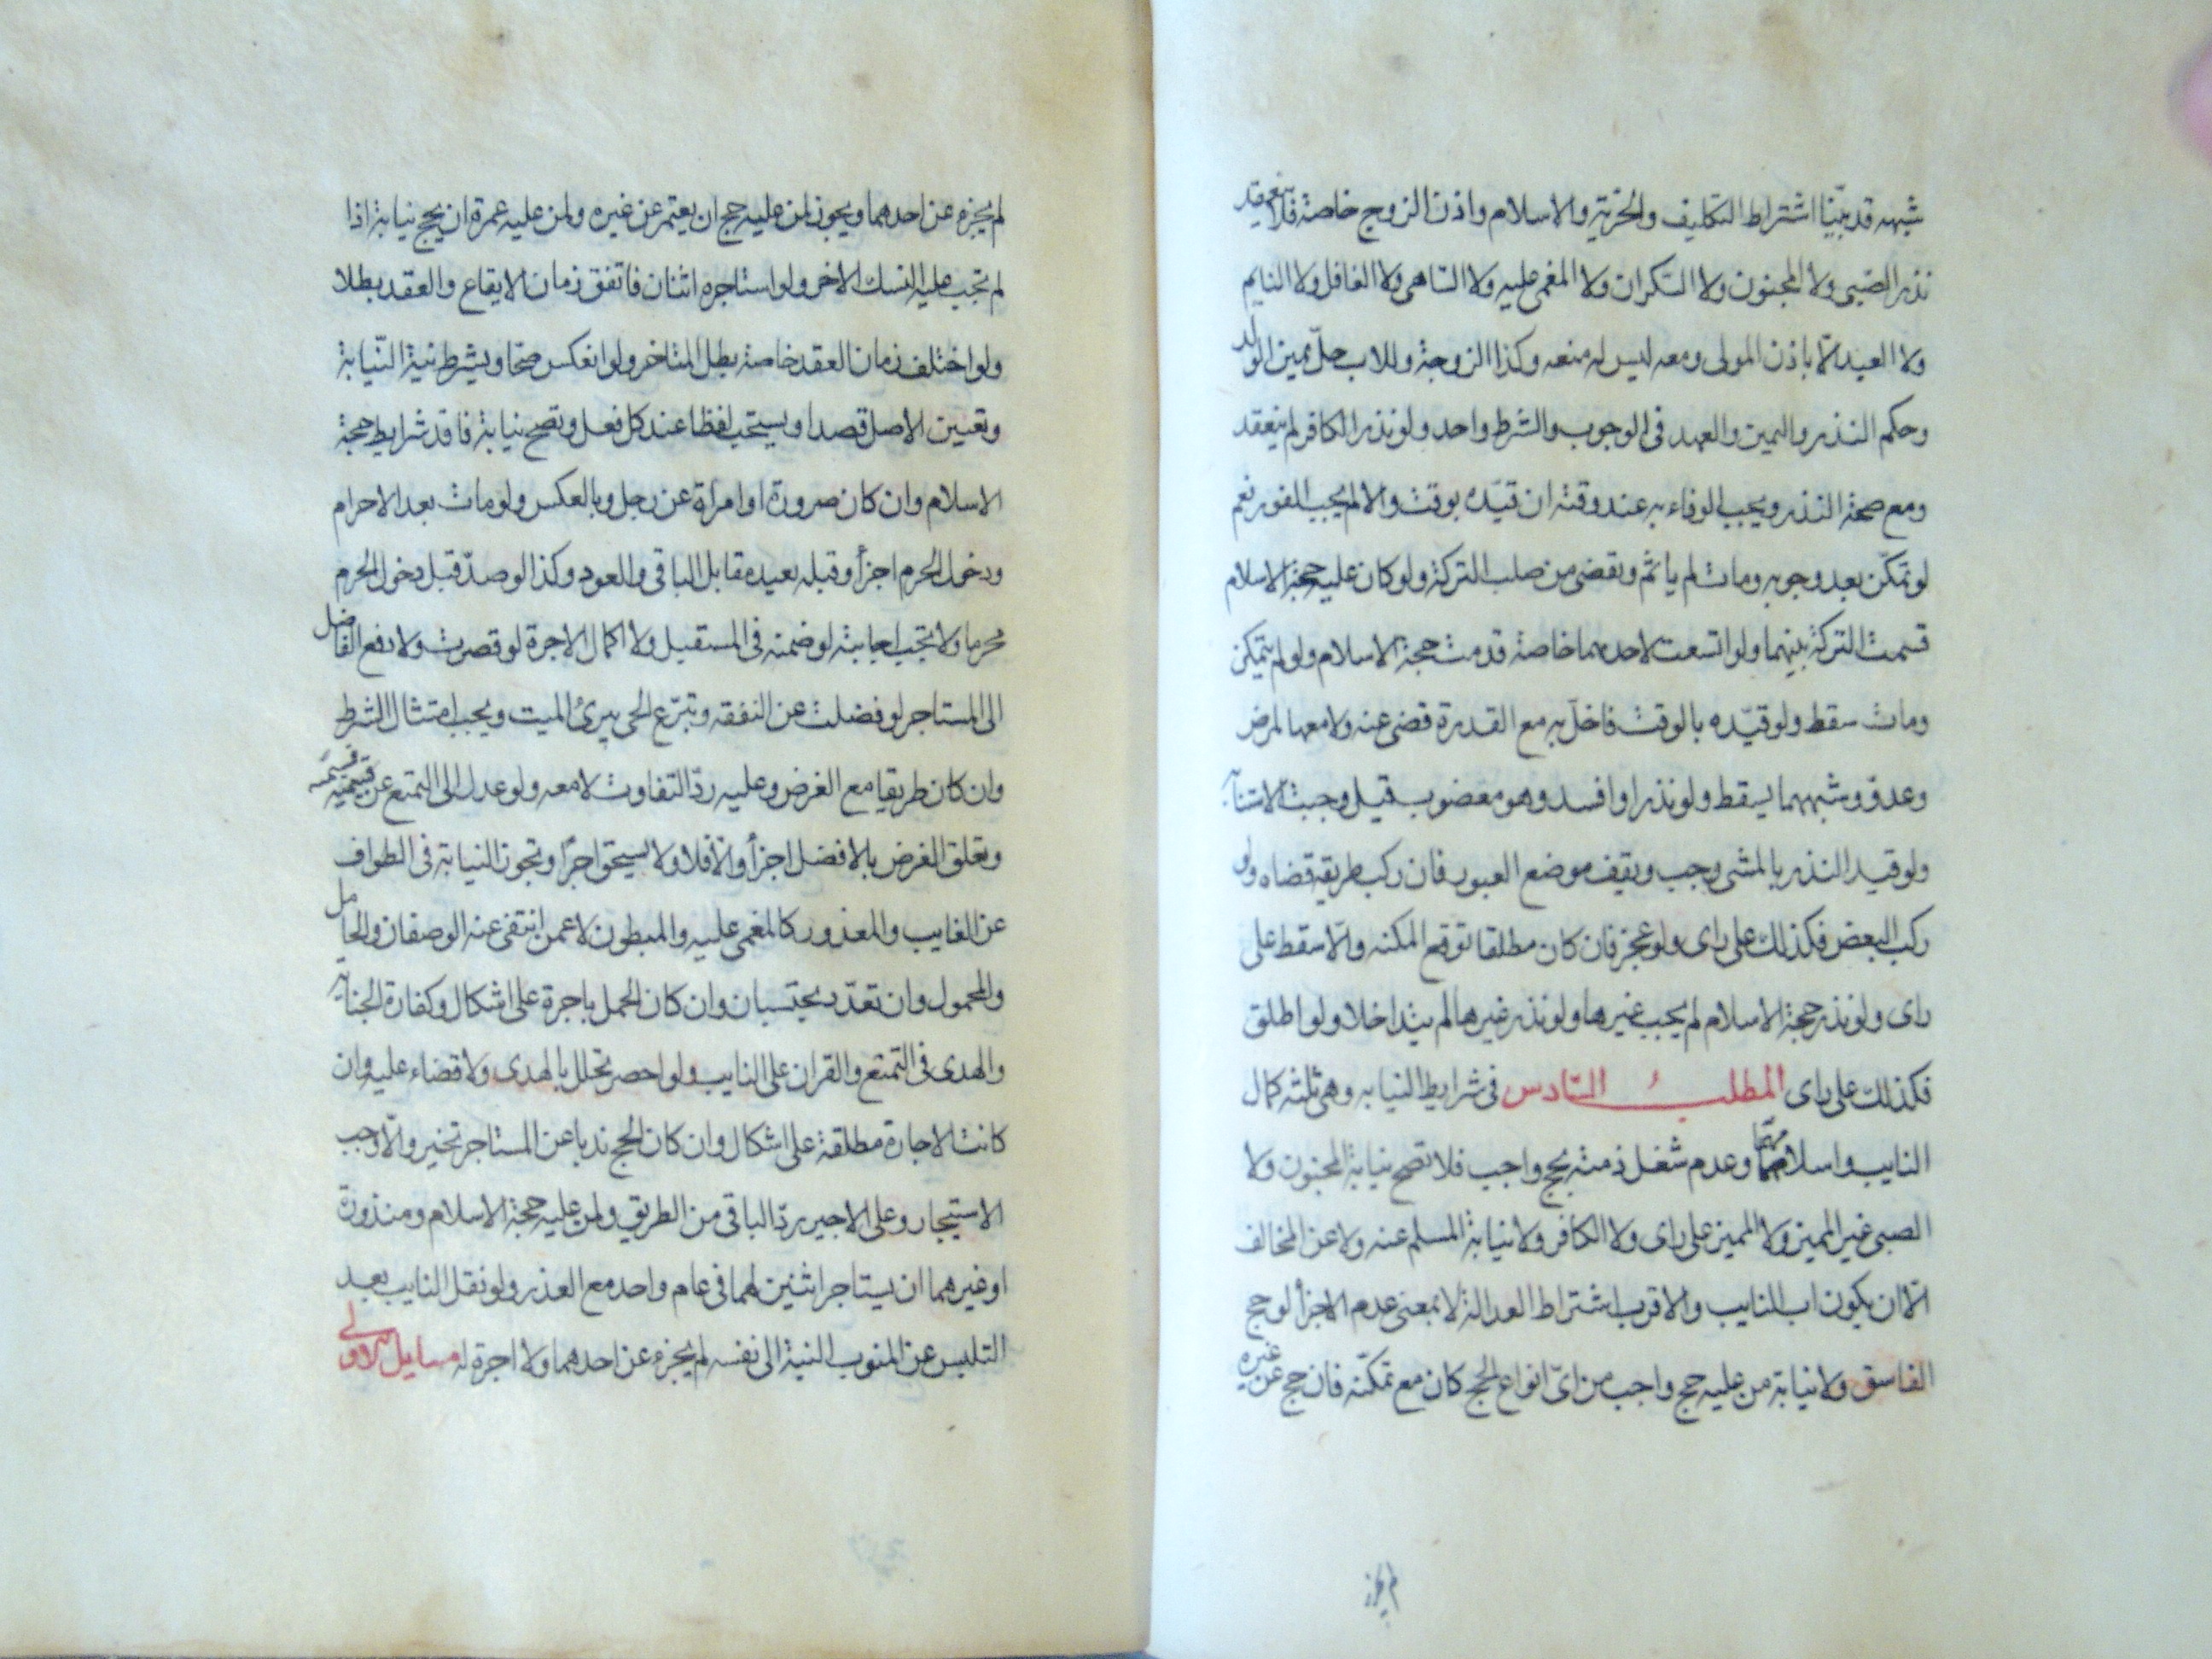 شبهه قد بينا اشتراط التكليف والحرية والاسلام واذن الزوج خاصة فلا ينعقد
نذر الصبي ولا المجنون ولا السكران ولا المغمى عليه ولا الساهي ولا الغافل ولا النايم
ولا العبد الا باذن المولى ومعه ليس له منعه وكذا الزوجة وللاب حل يمين الولد
وحكم النذر واليمين والعهد في الوجوب والشرط واحد ولو نذر الكافر لم ينعقد
ومع صحة النذر ويجب الوفاء به عند وقته ان قيده بوقت والا لم يجب الفور نعم
لو تمكن بعد وجوبه ومات لم ياثم ونقضى من صلب التركة ولو كان عليه حجة الاسلام
قسمت التركة بينهما ولو اتسعت لاحدهما خاصة قدمت حجة الاسلام ولو لم يتمكن
ومات سقط ولو قيده بالوقت فاخل به مع القدرة قضى عنه ولا معها لمرض
وعدو وشبههما يسقط ولو نذر او افسد وهو معضوب قيل وجبت الاستنابة
ولو قيد النذر بالمشي وجب ويقف موضع العبور فان ركب طريقه قضاه ولو
ركب البعض فكذلك على راى ولو عجز فان كان مطلقا توقع المكنه والا سقط على
راى ولو نذر حجة الاسلام لم يجب غيرها ولو نذر غيرها لم يتداخلا ولو اطلق
فكذلك على راى المطلب السادس في شرايط النيابه وهي ثلثه كمال
النايب واسلامهما وعدم شغل ذمته بحج واجب فلا تصح نيابة المجنون ولا
الصبي غير المميز ولا المميز على راى ولا الكافر ولا نيابة المسلم عنه ولا عن المخالف
الا ان يكون اب النايب والاقرب اشتراط العدالة لا بمعنى عدم الاجزأ لو حج
الفاسق ولا نيابة من عليه حج واجب من اى انواع الحج كان مع تمكنه فان حج عن غيره
لم يجز
لم يجزه عن احدهما ويجوز لمن عليه حج ان يعتمر عن غيره ولمن عليه عمرة ان يحج نيابة اذا
لم تجب عليه النسك الاخر ولو استاجره اثنان فاتفق زمان الايقاع والعقد بطلا
ولو اختلف زمان العقد خاصة بطل المتاخر ولو انعكس صحا ويشترط نية النيابة
وتعيين الاصل قصدا ويستحب لفظا عند كل فعل وتصح نيابة فاقد شرايط حجة
الاسلام وان كان صرورة او امراة عن رجل وبالعكس ولو مات بعد الاحرام
ودخول الحرم اجزأ وقبله يعيد مقابل الباقي والعود وكذا لو صد قبل دخول الحرم
محرما ولا تجب اجابته لو ضمنه في المستقبل ولا اكمال الاجرة لو قصرت ولا دفع الفاضل
الى المستاجر لو فضلت عن النفقه وتبرع الحى يبرئ الميت ويجب امتثال الشرط
وان كان طريقا مع الغرض وعليه رد التفاوت لا معه ولو عدل الى التمتع عن قسيميه
وتعلق الغرض بالافضل اجزأ والا فلا ولا يستحق اجرا وتجوز النيابة في الطواف
عن الغايب والمعذور كالمغمى عليه والمبطون لا عمن انتفى عنه الوصفان والحامل
والمحمول وان تعدد يحتسبان وان كان الحمل باجرة على اشكال وكفارة الجناية
والهدى في التمتع والقران على النايب ولو احصر تحلل بالهدى ولا قضاء عليه وان
كانت الاجارة مطلقة على اشكال وان كان الحج ندبا عن المستاجر تخير والا وجب
الاستيجار وعلى الاجير رد الباقى من الطريق ولمن عليه حجة الاسلام ومنذورة
او غيرهما ان يستاجر اثنين لهما في عام واحد مع العذر ولو نقل النايب بعد
التلبس عن المنوب النية الى نفسه لم يجزء عن احدهما ولا اجرة له مسايل الاولى